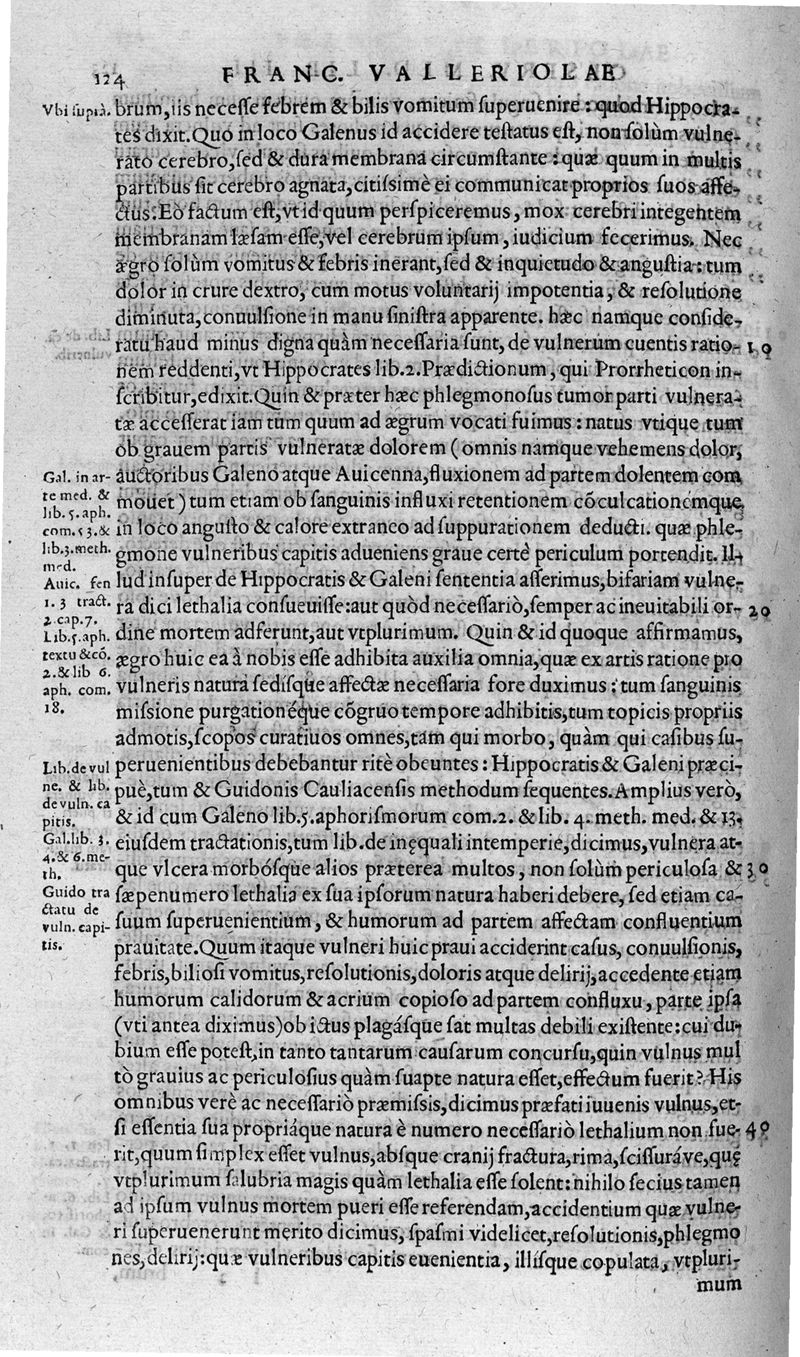 124 FRANC. VALLERIOLAE
Vbi suprà. brum, iis necesse febrem & bilis vomitum superuenire: quod Hippocra-
tes dixit. Quo in loco Galenus id accidere testatus est, non solùm vulne-
rato cerebro, sed & dura membrana circumstante: quæ quum in multis
partibus sit cerebro agnata, citissimè ei communicat proprios suos affe-
ctus: Eò factum est, vt id quum perspiceremus, mox cerebri integentem
membranam læsam esse, vel cerebrum ipsum, iudicium fecerimus. Nec
ægro solùm vomitus & febris inerant, sed & inquietudo & angustia: tum
dolor in crure dextro, cum motus voluntarij impotentia, & resolutione
diminuta, conuulsione in manu sinistra apparente. hæc namque conside-
ratu haud minus digna quàm necessaria sunt, de vulnerum euentis ratio- 10
nem reddenti, vt Hippocrates lib. 2. Prædictionum, qui Prorrheticon in-
scribitur, edixit. Quin & præter hæc phlegmonosus tumor parti vulnera-
tæ accesserat iam tum quum ad ægrum vocati fuimus: natus vtique tum
ob grauem partis vulneratæ dolorem (omnis namque vehemens dolor,
Gal. in ar- auctoribus Galeno atque Auicenna, fluxionem ad partem dolentem com
te med. & mouet) tum etiam ob sanguinis influxi retentionem cõculcationémque,
lib. 5. aph.
com. 53. & in loco angusto & calore extraneo ad suppurationem deducti. quæ phle-
lib. 3. meth. gmone vulneribus capitis adueniens graue certè periculum portendit. Il-
med.
Auic. fen lud insuper de Hippocratis & Galeni sententia asserimus, bifariam vulne-
1. 3 tract. ra dici lethalia consueuisse: aut quòd necessariò, semper ac ineuitabili or- 20
2. cap. 7.
Lib. 5. aph. dine mortem adferunt, aut vtplurimum. Quin & id quoque affirmamus,
textu & cõ. ægro huic ea à nobis esse adhibita auxilia omnia, quæ ex artis ratione pro
2. & lib 6.
aph. com. vulneris natura sedisque affectæ necessaria fore duximus: tum sanguinis
18. missione purgationéque cõgruo tempore adhibitis, tum topicis propriis
admotis, scopos curatiuos omnes, tam qui morbo, quàm qui casibus su-
Lib. de vul peruenientibus debebantur ritè obeuntes: Hippocratis & Galeni præci-
ne. & lib. puè, tum & Guidonis Cauliacensis methodum sequentes. Amplius verò,
de vuln. ca
pitis. & id cum Galeno lib. 5. aphorismorum com. 2. & lib. 4. meth. med. & 13.
Gal. lib. 3. eiusdem tractationis, tum lib. de inęquali intemperie, dicimus, vulnera at-
4. & 6. me-
th. que vlcera morbósque alios præterea multos, non solùm periculosa & 30
Guido tra sæpenumero lethalia ex sua ipsorum natura haberi debere, sed etiam ca-
ctatu de
vuln. capi- suum superuenientium, & humorum ad partem affectam confluentium
tis. prauitate. Quum itaque vulneri huic praui acciderint casus, conuulsionis,
febris, biliosi vomitus, resolutionis, doloris atque delirij, accedente etiam
humorum calidorum & acrium copioso ad partem confluxu, parte ipsa
(vti antea diximus) ob ictus plagásque sat multas debili existente: cui du-
bium esse potest, in tanto tantarum causarum concursu, quin vulnus mul
tò grauius ac periculosius quàm suapte natura esset, effectum fuerit? His
omnibus verè ac necessariò præmissis, dicimus præfati iuuenis vulnus, et-
si essentia sua propriáque natura è numero necessariò lethalium non fue- 40
rit, quum simplex esset vulnus, absque cranij fractura, rima, scissuráve, quę
vtplurimum salubria magis quàm lethalia esse solent: nihilo secius tamen
ad ipsum vulnus mortem pueri esse referendam, accidentium quæ vulne-
ri superuenerunt merito dicimus, spasmi videlicet, resolutionis, phlegmo
nes, delirij: quæ vulneribus capitis euenientia, illísque copulata, vtpluri-
mum